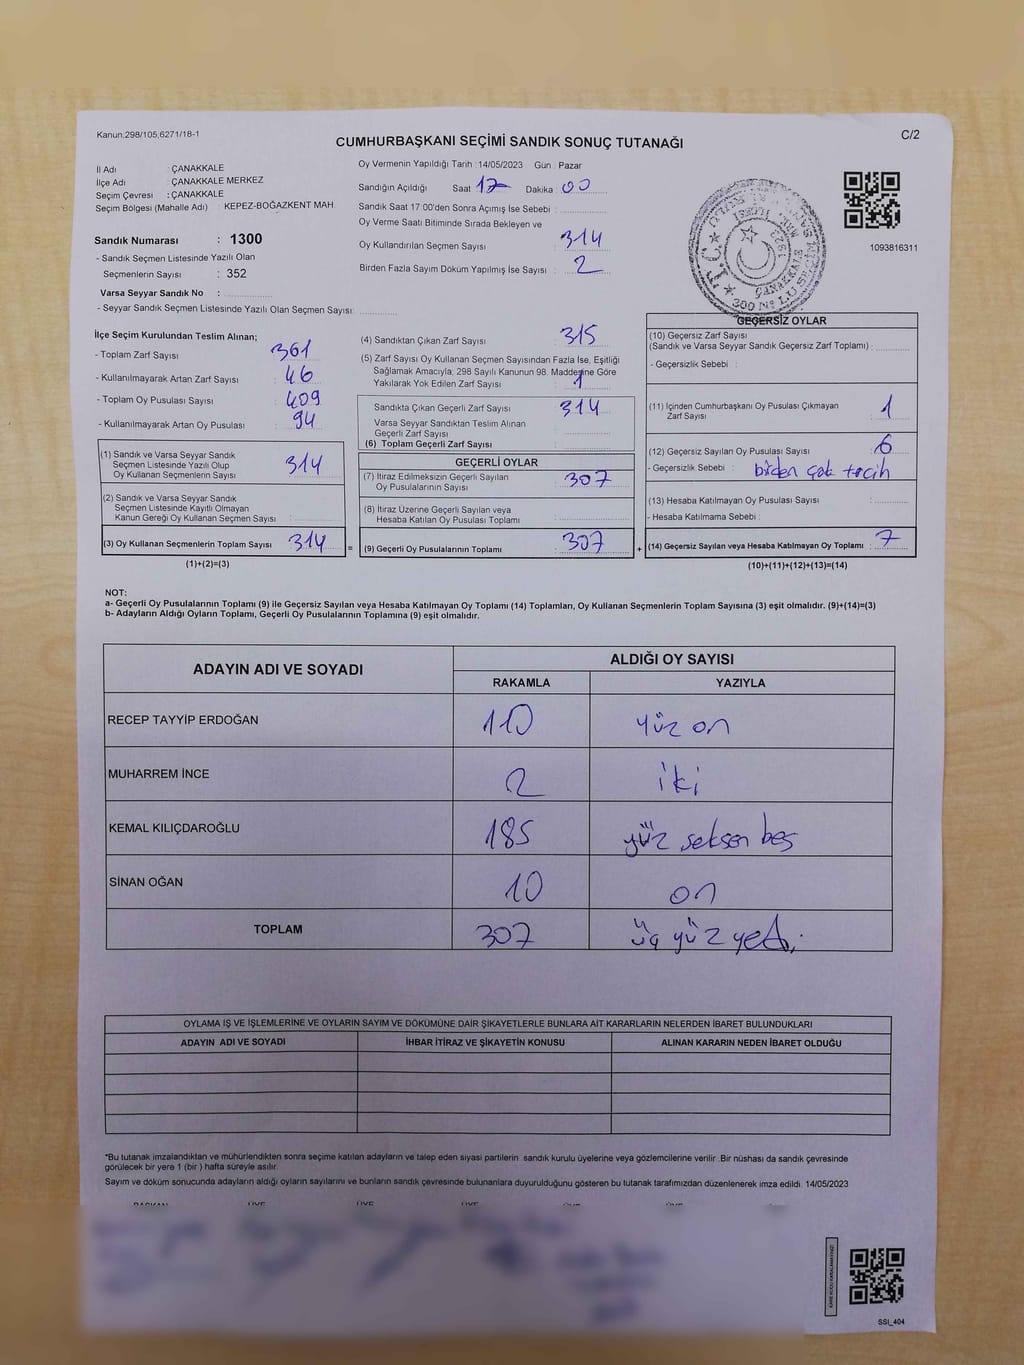 Kanun;298/105,6271/18-1
C/2
CUMHURBAŞKANI SEÇİMİ SANDIK SONUÇ TUTANAĞI
İl Adı : ÇANAKKALE
İlçe Adı : ÇANAKKALE MERKEZ
Seçim Çevresi : ÇANAKKALE
Seçim Bölgesi (Mahalle Adı) : KEPEZ-BOĞAZKENT MAH.
Sandık Numarası : 1300
- Sandık Seçmen Listesinde Yazılı Olan
Seçmenlerin Sayısı : 352
Varsa Seyyar Sandık No :
- Seyyar Sandık Seçmen Listesinde Yazılı Olan Seçmen Sayısı:
Oy Vermenin Yapıldığı Tarih : 14/05/2023 Gün : Pazar
Sandığın Açıldığı Saat 17 Dakika : 00
Sandık Saat 17:00'den Sonra Açımış İse Sebebi :
Oy Verme Saati Bitiminde Sırada Bekleyen ve
Oy Kullandırılan Seçmen Sayısı : 314
Birden Fazla Sayım Döküm Yapılmış İse Sayısı : 2
T.C.
ÇANAKKALE
1093816311
İlçe Seçim Kurulundan Teslim Alınan;
- Toplam Zarf Sayısı 361
- Kullanılmayarak Artan Zarf Sayısı 46
- Toplam Oy Pusulası Sayısı 409
- Kullanılmayarak Artan Oy Pusulası 94
(1) Sandık ve Varsa Seyyar Sandık
Seçmen Listesinde Yazılı Olup
Oy Kullanan Seçmenlerin Sayısı 314
(2) Sandık ve Varsa Seyyar Sandık
Seçmen Listesinde Kayıtlı Olmayan
Kanun Gereği Oy Kullanan Seçmen Sayısı :
(3) Oy Kullanan Seçmenlerin Toplam Sayısı 314 =
(1)+(2)=(3)
(4) Sandıktan Çıkan Zarf Sayısı : 315
(5) Zarf Sayısı Oy Kullanan Seçmen Sayısından Fazla İse, Eşitliği
Sağlamak Amacıyla; 298 Sayılı Kanunun 98. Maddesine Göre
Yakılarak Yok Edilen Zarf Sayısı : 1
Sandıkta Çıkan Geçerli Zarf Sayısı : 314
Varsa Seyyar Sandıktan Teslim Alınan
Geçerli Zarf Sayısı :
(6) Toplam Geçerli Zarf Sayısı :
GEÇERLİ OYLAR
(7) İtiraz Edilmeksizin Geçerli Sayılan
Oy Pusulalarının Sayısı : 307
(8) İtiraz Üzerine Geçerli Sayılan veya
Hesaba Katılan Oy Pusulası Toplamı :
(9) Geçerli Oy Pusulalarının Toplamı : 307 +
GEÇERSİZ OYLAR
(10) Geçersiz Zarf Sayısı
(Sandık ve Varsa Seyyar Sandık Geçersiz Zarf Toplamı) :
- Geçersizlik Sebebi :
(11) İçinden Cumhurbaşkanı Oy Pusulası Çıkmayan
Zarf Sayısı : 1
(12) Geçersiz Sayılan Oy Pusulası Sayısı : 6
- Geçersizlik Sebebi : birden çok tercih
(13) Hesaba Katılmayan Oy Pusulası Sayısı :
- Hesaba Katılmama Sebebi :
(14) Geçersiz Sayılan veya Hesaba Katılmayan Oy Toplamı : 7
(10)+(11)+(12)+(13)=(14)
NOT:
a- Geçerli Oy Pusulalarının Toplamı (9) ile Geçersiz Sayılan veya Hesaba Katılmayan Oy Toplamı (14) Toplamları, Oy Kullanan Seçmenlerin Toplam Sayısına (3) eşit olmalıdır. (9)+(14)=(3)
b- Adayların Aldığı Oyların Toplamı, Geçerli Oy Pusulalarının Toplamına (9) eşit olmalıdır.
ADAYIN ADI VE SOYADI
ALDIĞI OY SAYISI
RAKAMLA YAZIYLA
RECEP TAYYİP ERDOĞAN 110 yüz on
MUHARREM İNCE 2 iki
KEMAL KILIÇDAROĞLU 185 yüz seksen beş
SİNAN OĞAN 10 on
TOPLAM 307 üç yüz yedi
OYLAMA İŞ VE İŞLEMLERİNE VE OYLARIN SAYIM VE DÖKÜMÜNE DAİR ŞİKAYETLERLE BUNLARA AİT KARARLARIN NELERDEN İBARET BULUNDUKLARI
ADAYIN ADI VE SOYADI İHBAR İTİRAZ VE ŞİKAYETİN KONUSU ALINAN KARARIN NEDEN İBARET OLDUĞU
*Bu tutanak imzalandıktan ve mühürlendikten sonra seçime katılan adayların ve talep eden siyasi partilerin sandık kurulu üyelerine veya gözlemcilerine verilir. Bir nüshası da sandık çevresinde
görülecek bir yere 1 (bir) hafta süreyle asılır.
Sayım ve döküm sonucunda adayların aldığı oyların sayılarını ve bunların sandık çevresinde bulunanlara duyurulduğunu gösteren bu tutanak tarafımızdan düzenlenerek imza edildi. 14/05/2023
SSI_404